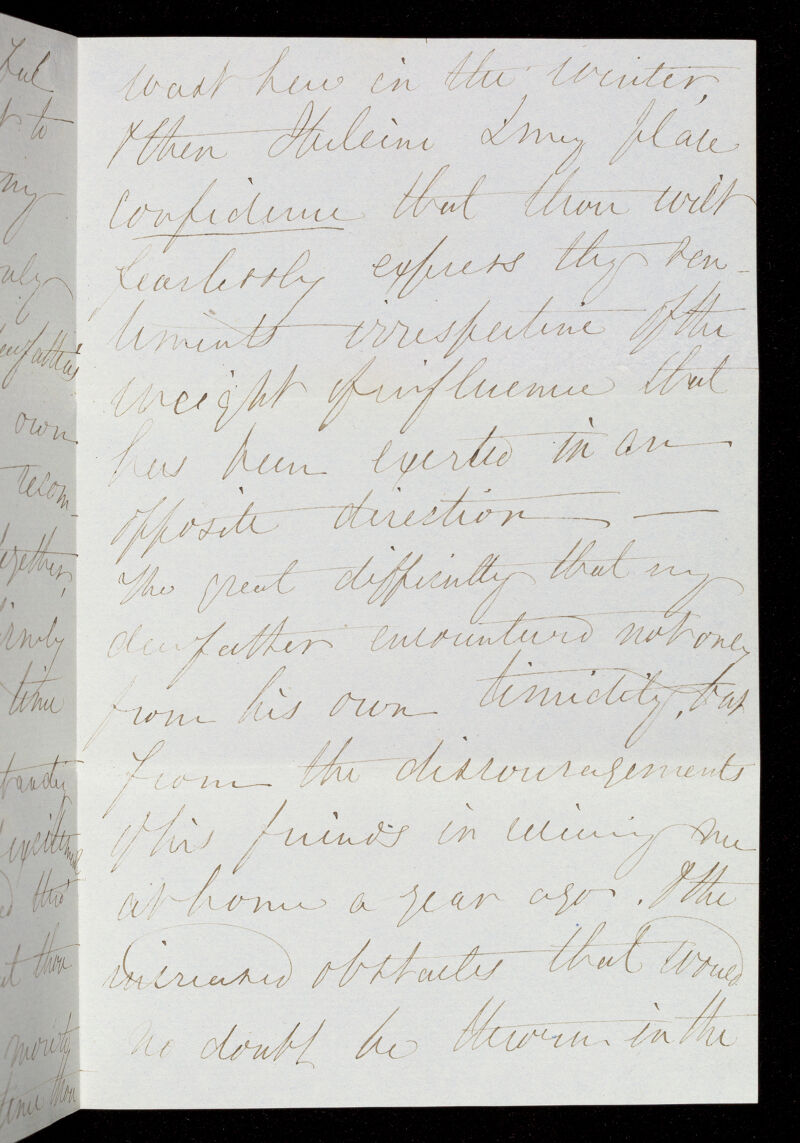 tul
to
my
only
dear father's
own
recom-
together,
firmly
time
standing
excitement
ed this
at thou
thou
wast here in the winter,
& then I may place
confidence that thou wilt
fearlessly express thy sen-
timents irrespective of the
weight of influence that
has been exerted in an
opposite direction —
The great difficulty that my
dear father encountered not only
from his own timidity, but
from the discouragements
of his friends in receiving me
at home a year ago. & the
increased obstacles that would
no doubt be thrown in the